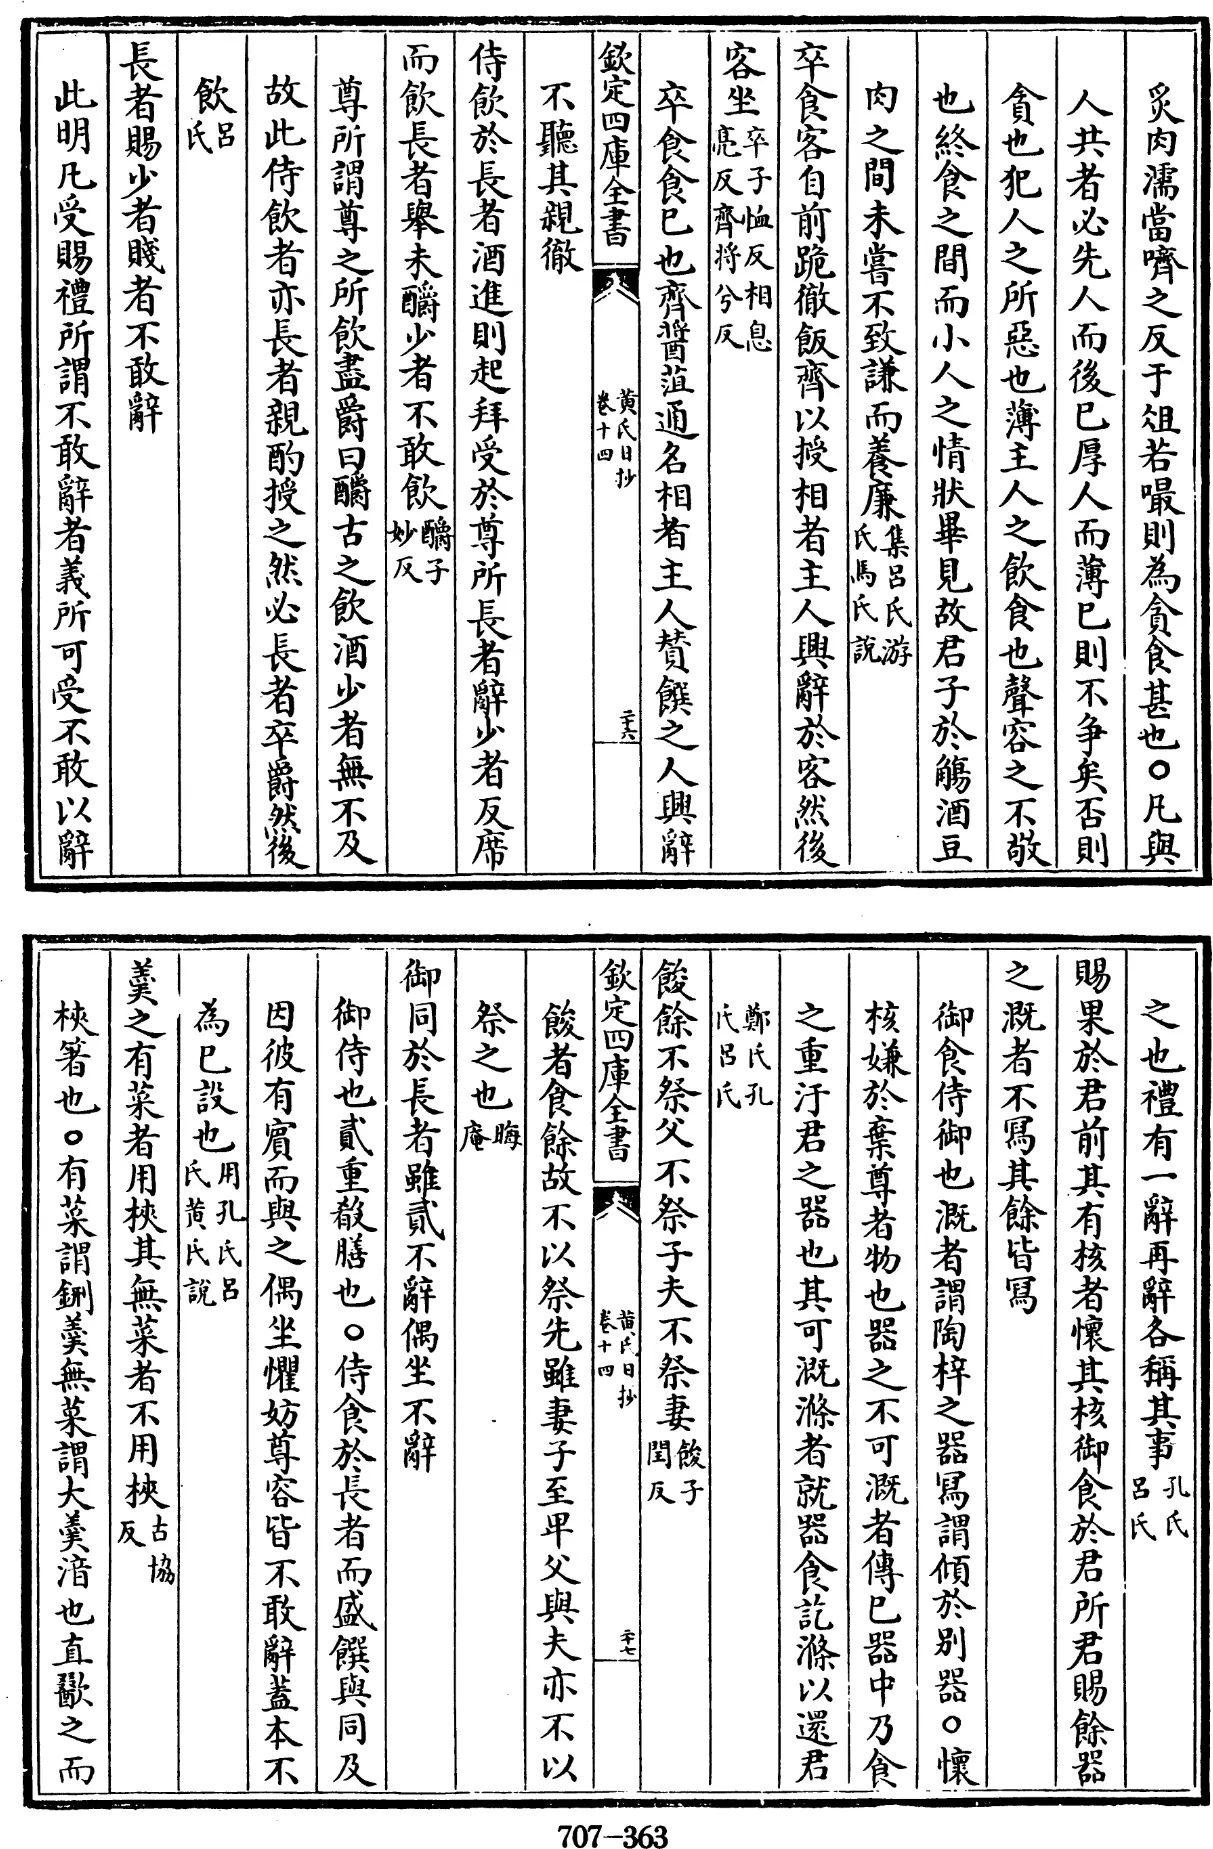 炙肉濡當嚌之反于俎若嘬則為貪食甚也○凡與
人共者必先人而後已厚人而薄已則不争矣否則
貪也犯人之所惡也薄主人之飲食也聲容之不敬
也終食之間而小人之情狀畢見故君子於觴酒豆
肉之間未嘗不致謙而養廉集吕氏游氏馬氏說
卒食客自前跪徹飯齊以授相者主人興辭於客然後
客坐卒子恤反相息亮反齊将兮反
卒食食已也齊醬菹通名相者主人賛饌之人興辭
欽定四庫全書
黄氏日抄
卷十四
二十六
不聽其親徹
侍飲於長者酒進則起拜受於尊所長者辭少者反席
而飲長者舉未釂少者不敢飲釂子妙反
尊所謂尊之所飲盡爵曰釂古之飲酒少者無不及
故此侍飲者亦長者親酌授之然必長者卒爵然後
飲吕氏
長者賜少者賤者不敢辭
此明凡受賜禮所謂不敢辭者義所可受不敢以辭
之也禮有一辭再辭各稱其事孔氏吕氏
賜果於君前其有核者懷其核御食於君所君賜餘器
之溉者不冩其餘皆冩
御食侍御也溉者謂陶梓之器冩謂傾於别器○懐
核嫌於棄尊者物也器之不可溉者傳已器中乃食
之重汙君之器也其可溉滌者就器食訖滌以還君
鄭氏孔氏吕氏
餕餘不祭父不祭子夫不祭妻餕子閏反
欽定四庫全書
黄氏日抄
卷十四
二十七
餕者食餘故不以祭先雖妻子至卑父與夫亦不以
祭之也晦庵
御同於長者雖貳不辭偶坐不辭
御侍也貳重殽膳也○侍食於長者而盛饌與同及
因彼有賓而與之偶坐懼妨尊客皆不敢辭蓋本不
為已設也用孔氏吕氏黄氏說
羹之有菜者用梜其無菜者不用梜古協反
梜箸也○有菜謂鉶羹無菜謂大羹湆也直歠之而
707-363